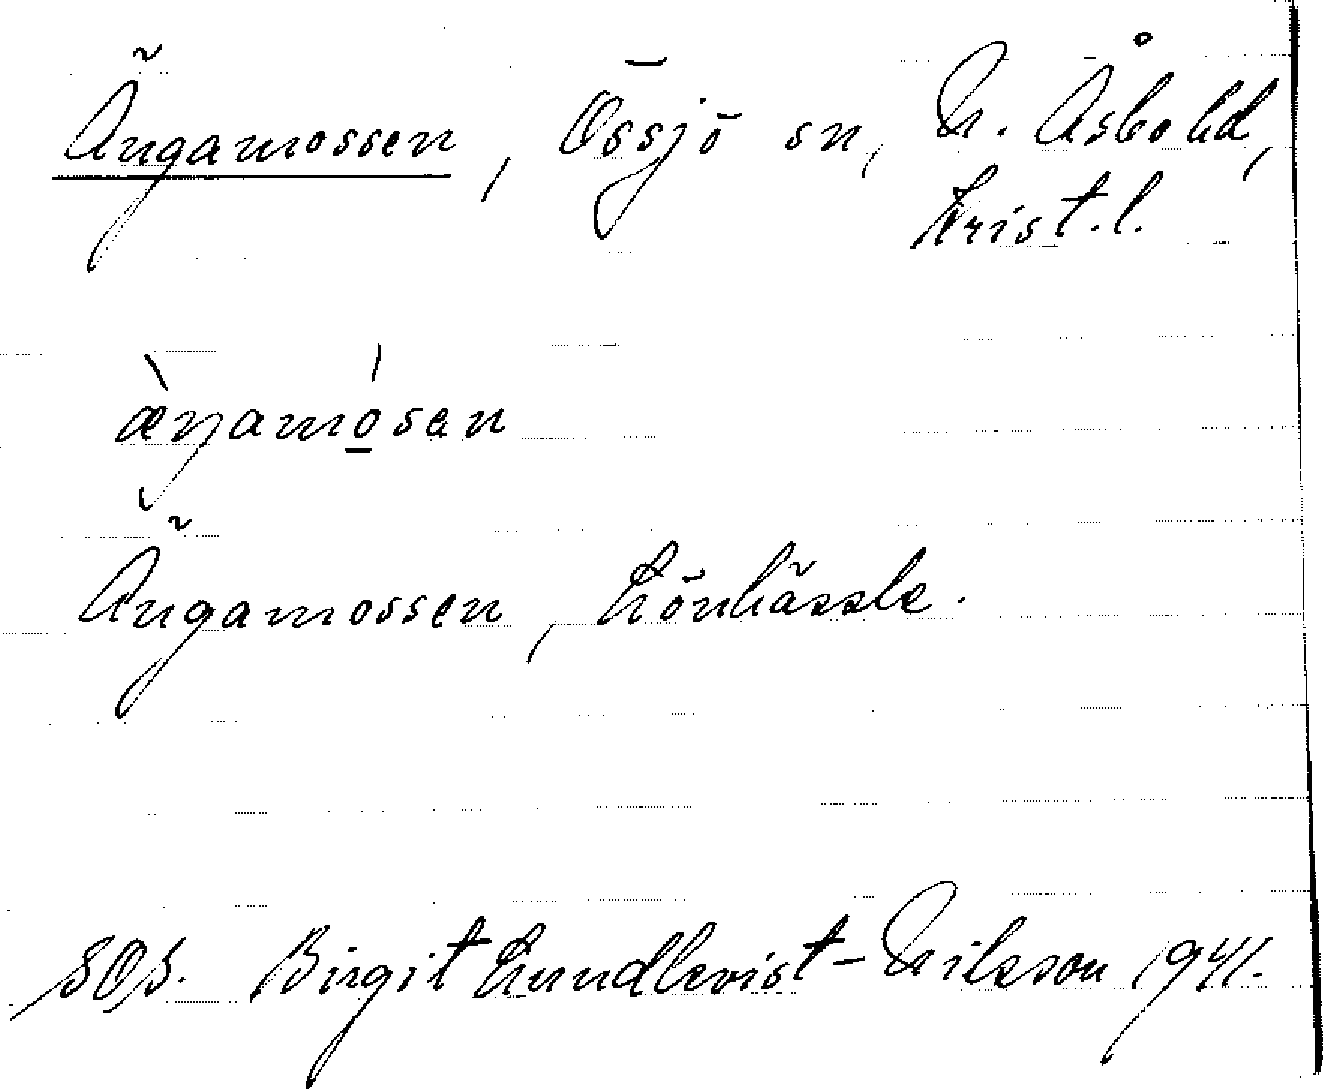 Ängamossen, Össjö sn, N. Åsbohd,
Krist.l.
æ̀ŋamósen
Ängamossen, Lönhässle.
SOS. Birgit Lundkvist-Nilsson 1941.